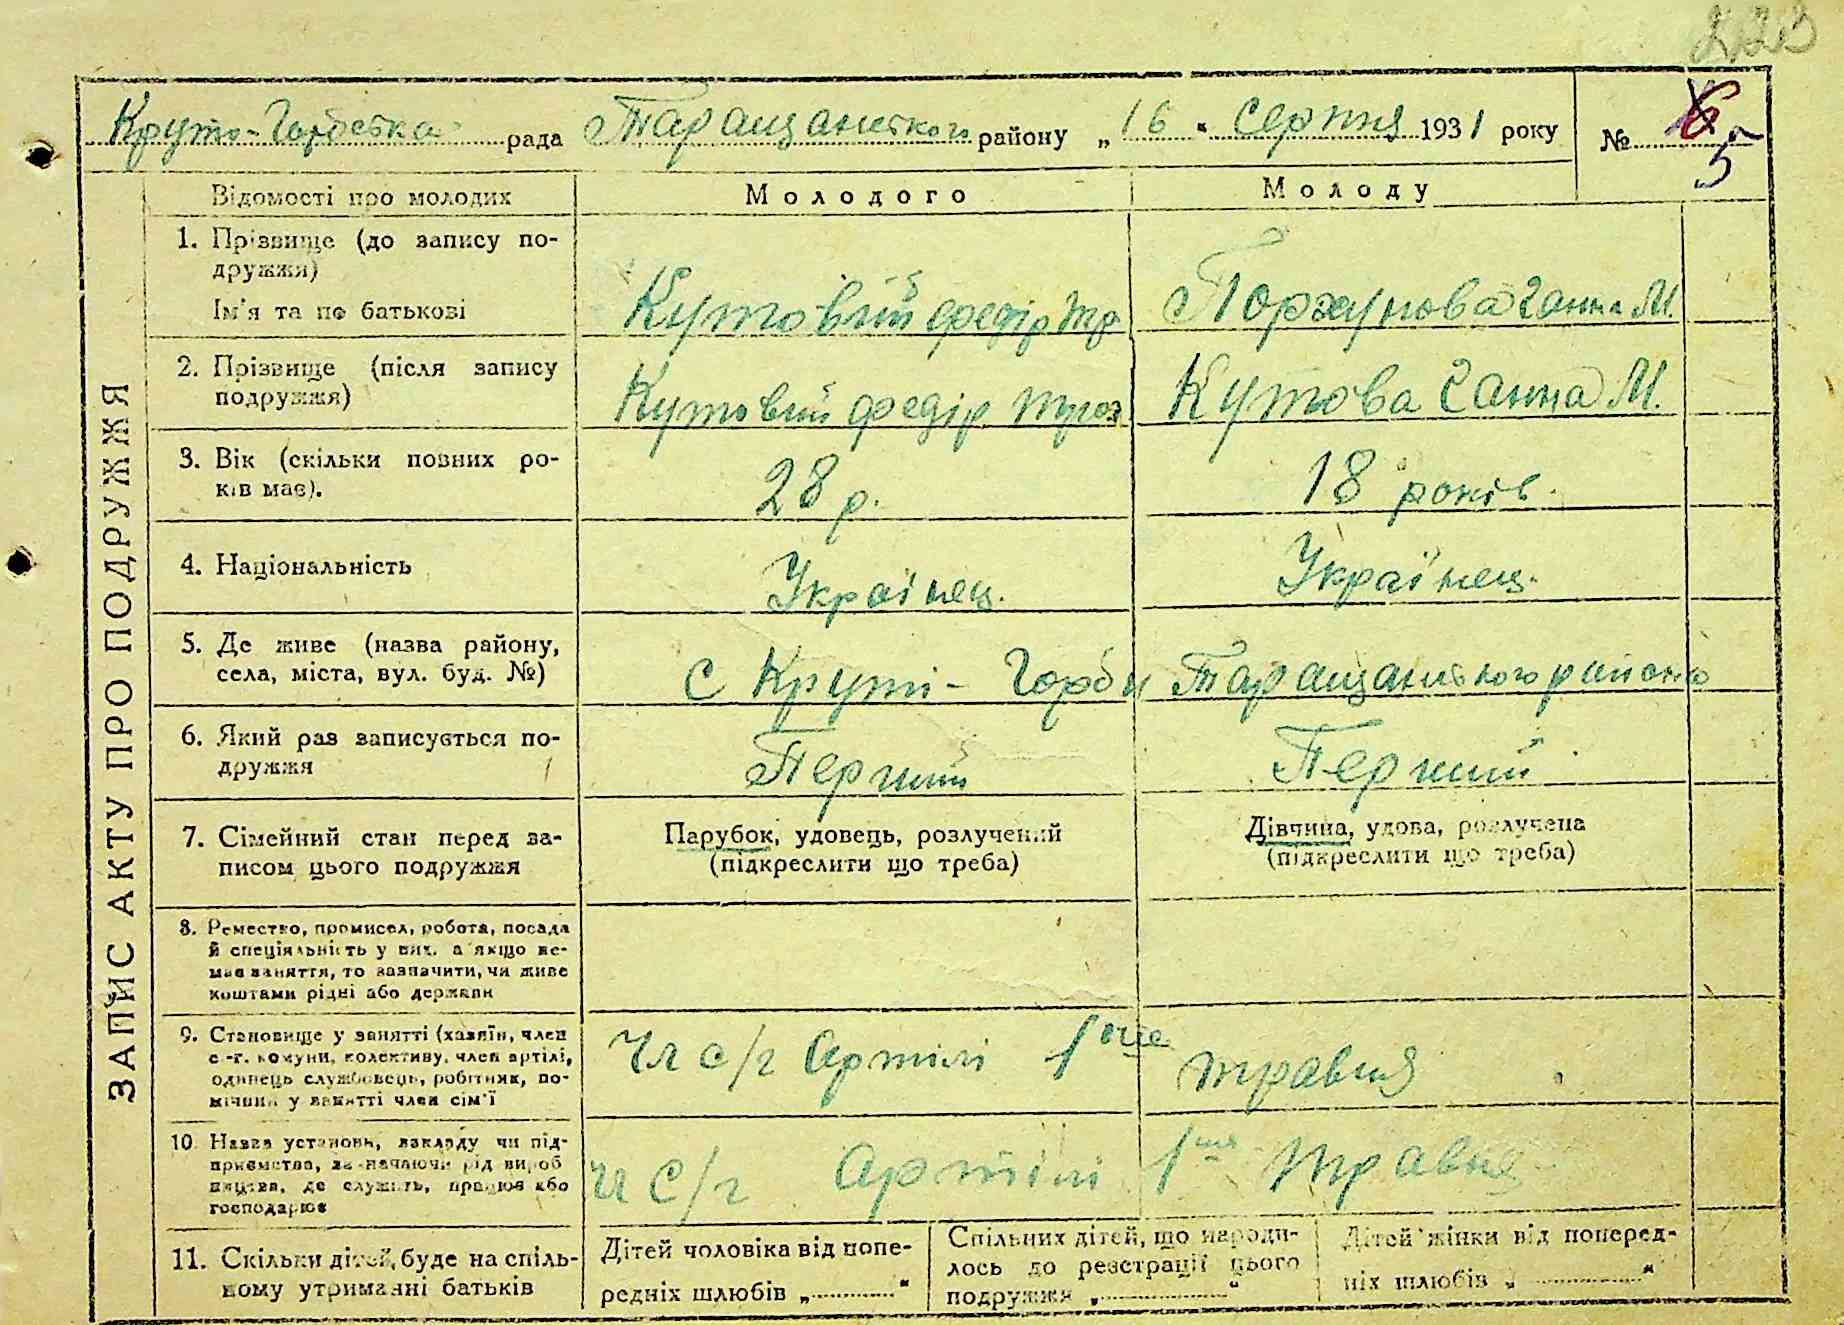 223
Круто-Горбська рада Таращанського району „16“ серпня 1931 року № 6
5
ЗАПИС АКТУ ПРО ПОДРУЖЖЯ
Відомості про молодих Молодого Молоду
1. Прізвище (до запису по-
дружжя)
Ім'я та по батькові Кутовий Федір Тр Ганна М.
2. Прізвище (після запису
подружжя) Кутовий Федір Кутова Ганна М.
3. Вік (скільки повних ро-
ків має). 28 р. 18 років.
4. Національність Українец. Українец.
5. Де живе (назва району,
села, міста, вул. буд. №) с Круті-Горби Таращанського району
6. Який раз записується по-
дружжя Перший Перший
7. Сімейний стан перед за-
писом цього подружжя
Парубок, удовець, розлучений
(підкреслити що треба)
Дівчина, удова, розлучена
(підкреслити що треба)
8. Ремество, промисел, робота, посада
й спеціяльність у них, а якщо не-
має заняття, то зазначити, чи живе
коштами рідні або держави
9. Становище у занятті (хазяїн, член
с.-г. комуни, колективу, член артілі,
одинець службовець, робітник, по-
мічний у занятті член сім'ї
Чл с/г Артілі 1ше травня
10. Назва установи, закладу чи під-
приємства, зазначаючи рід вироб
ництва, де служить, працює або
господарює
Чл с/г Артілі 1ше Травня
11. Скільки дітей буде на спіль-
ному утриманні батьків
Дітей чоловіка від попе-
редніх шлюбів „............“
Спільних дітей, що народи-
лось до реєстрації цього
подружжя „............“
Дітей жінки від поперед-
ніх шлюбів „............“